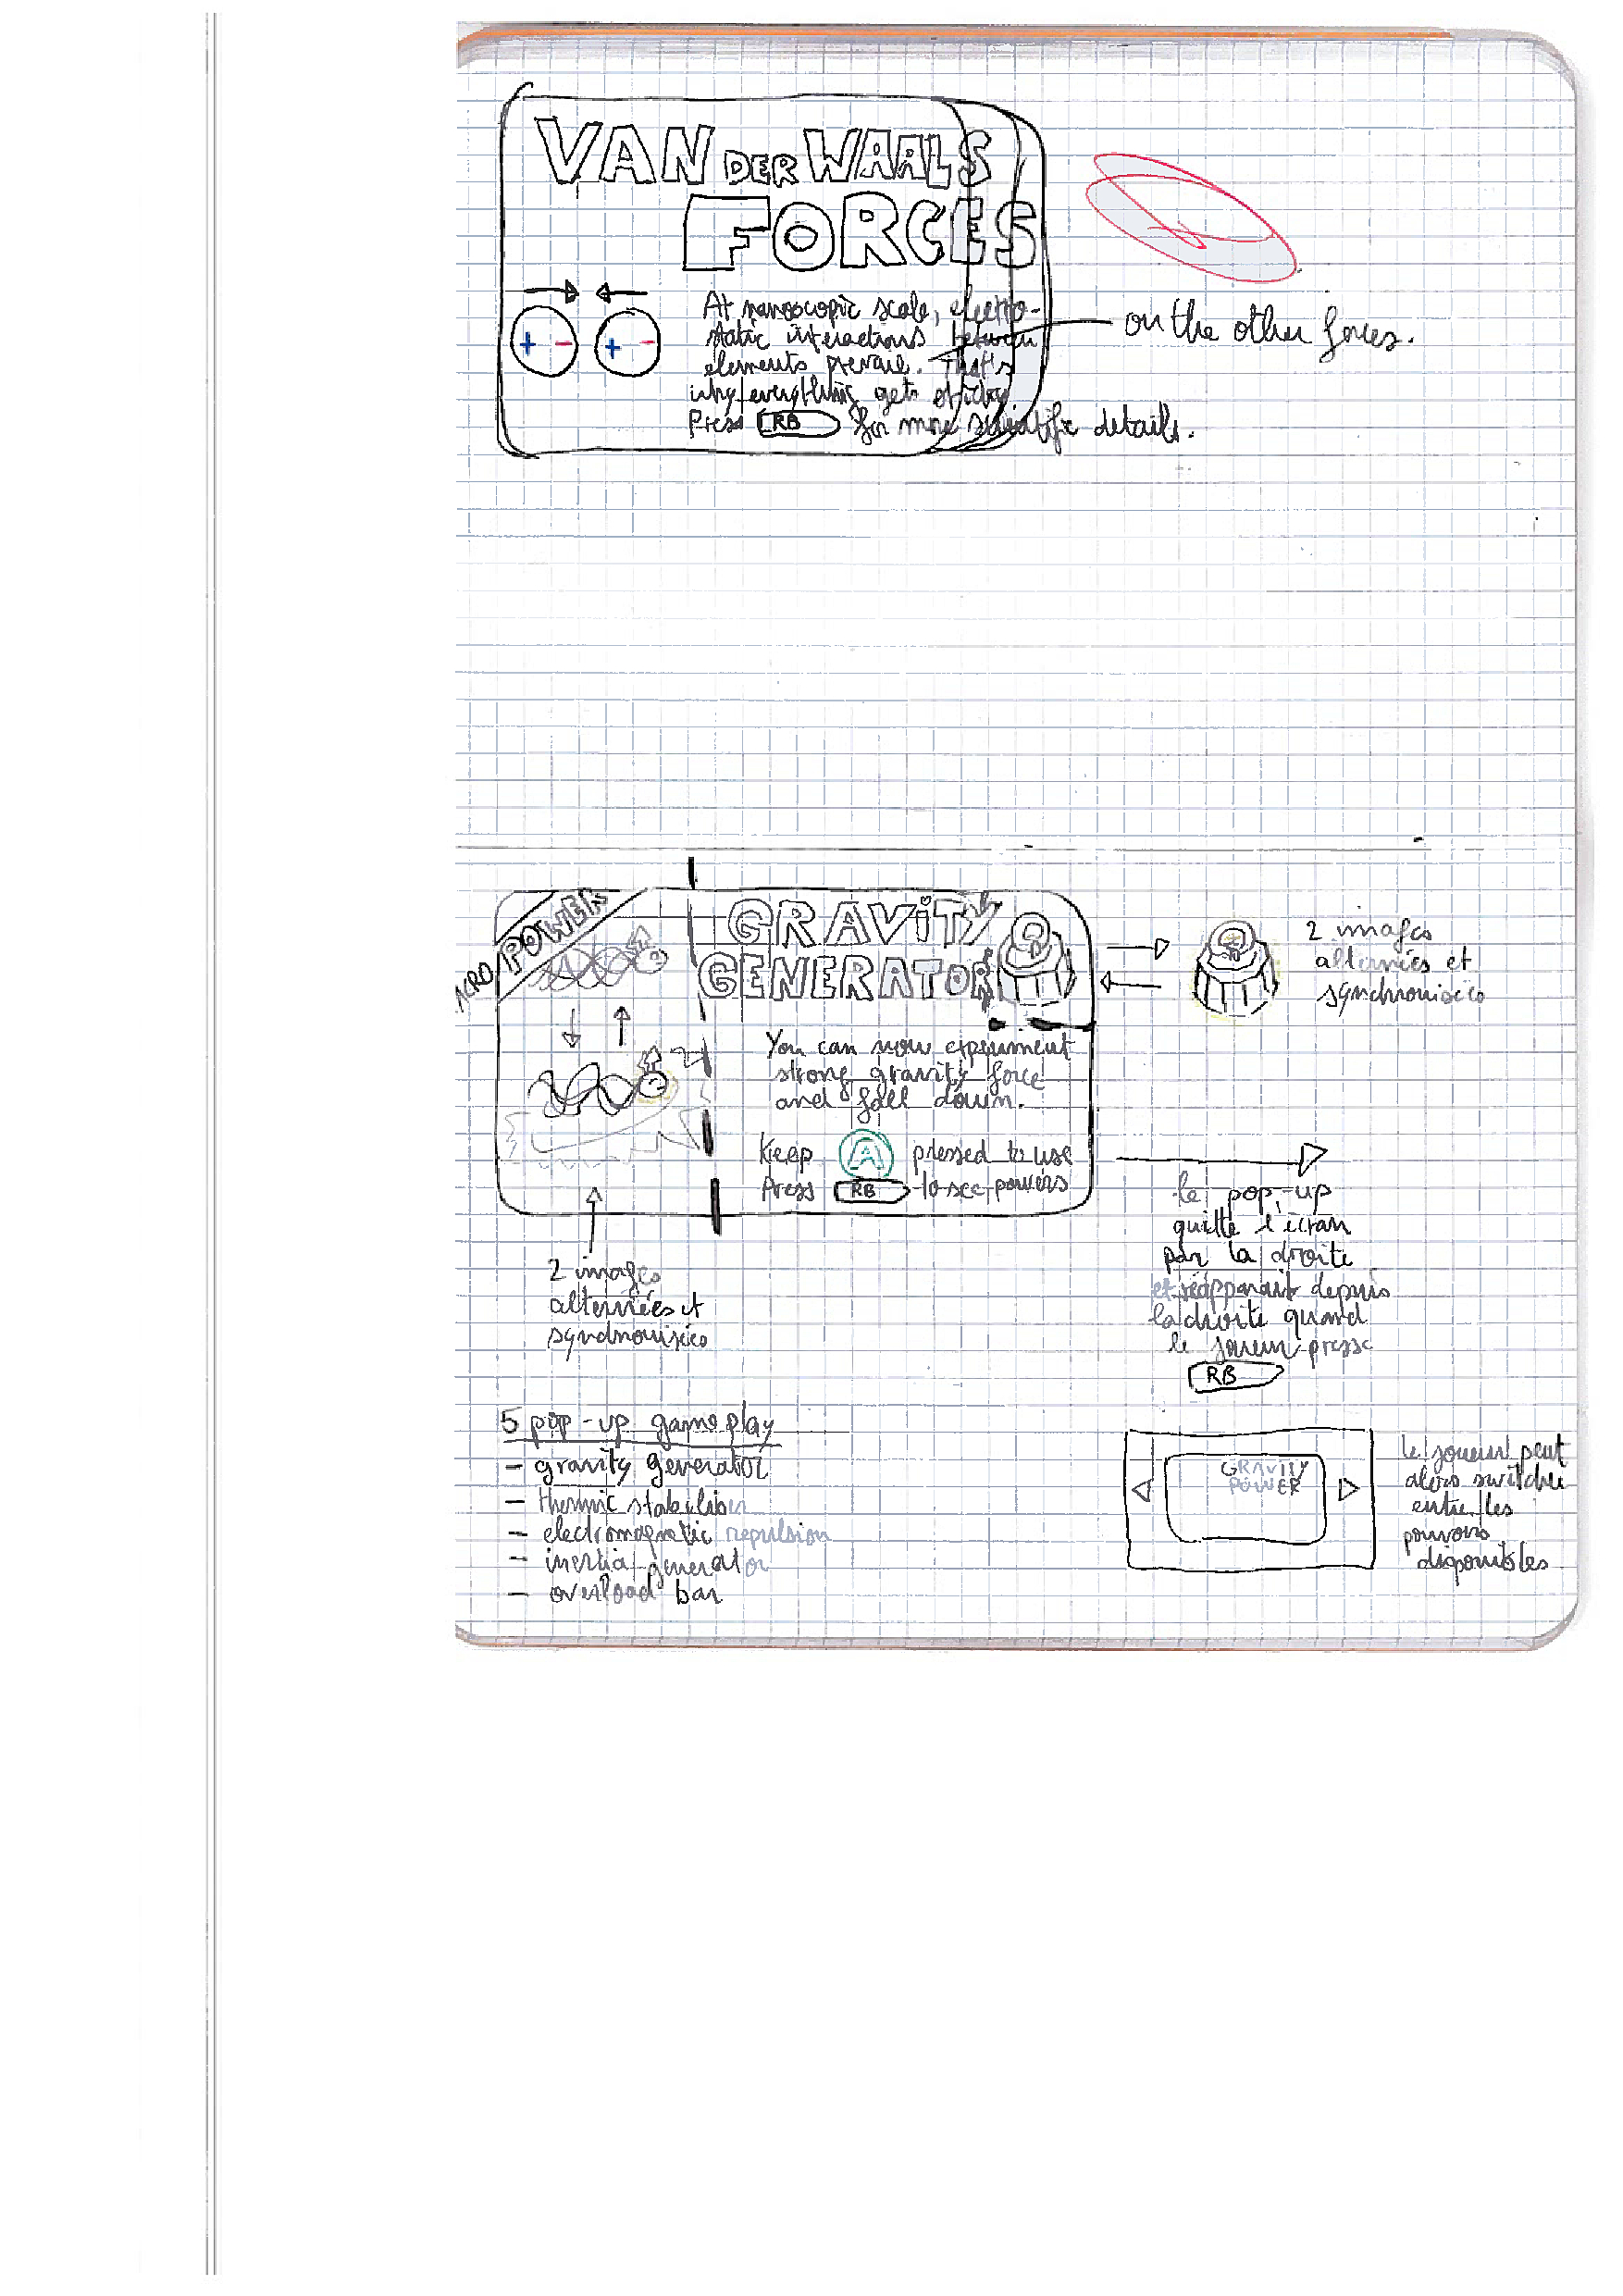 VAN DER WAALS
FORCES
At nanoscopic scale, electro-
static interactions between
elements prevail. That's
why everything gets sticky
Press RB for more scientific details.
on the other forces.
+ - + -
POWER
GRAVITY
GENERATOR
You can now experiment
strong gravity force
and fall down.
Keep A pressed to use
Press RB to see powers
2 images
alternées et
synchronisées
2 images
alternées et
synchronisées
le pop-up
quitte l'écran
par la droite
et réapparait depuis
la droite quand
le joueur presse
RB
5 pop-up gameplay
- gravity generator
- thermic stabiliser
- electromagnetic repulsion
- inertia generator
- overload bar
GRAVITY
POWER
le joueur peut
alors switcher
entre les
pouvoirs
disponibles